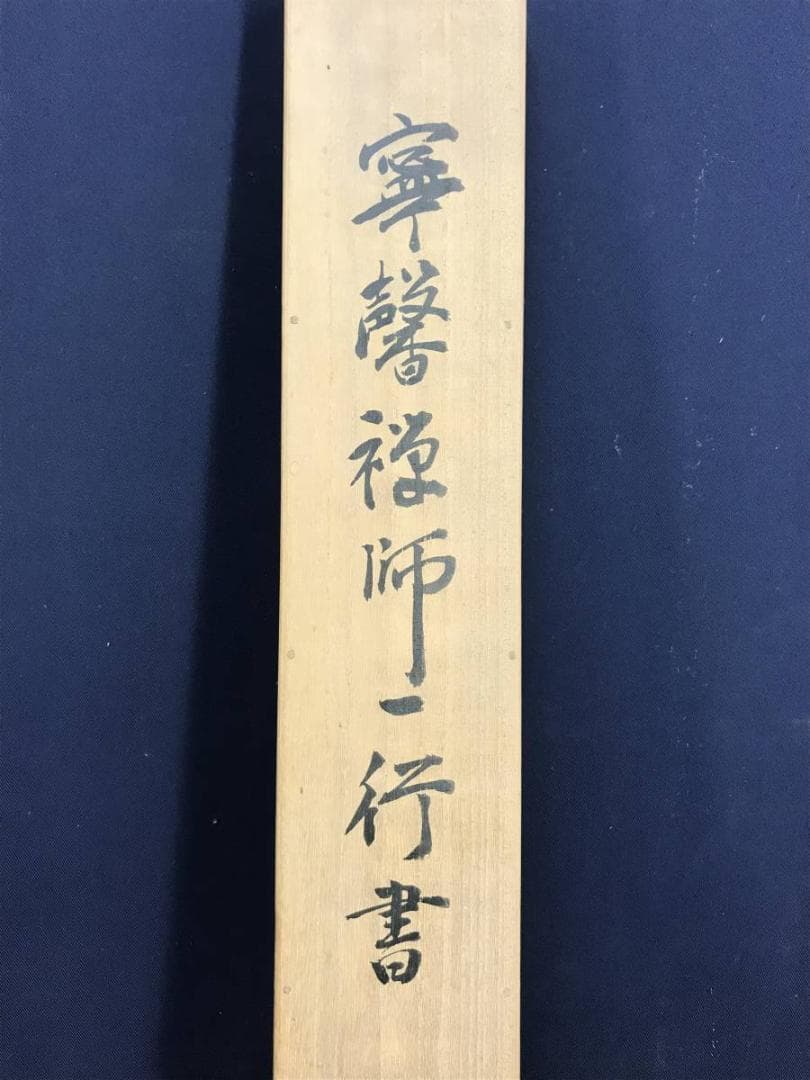 寧馨禅師一行書